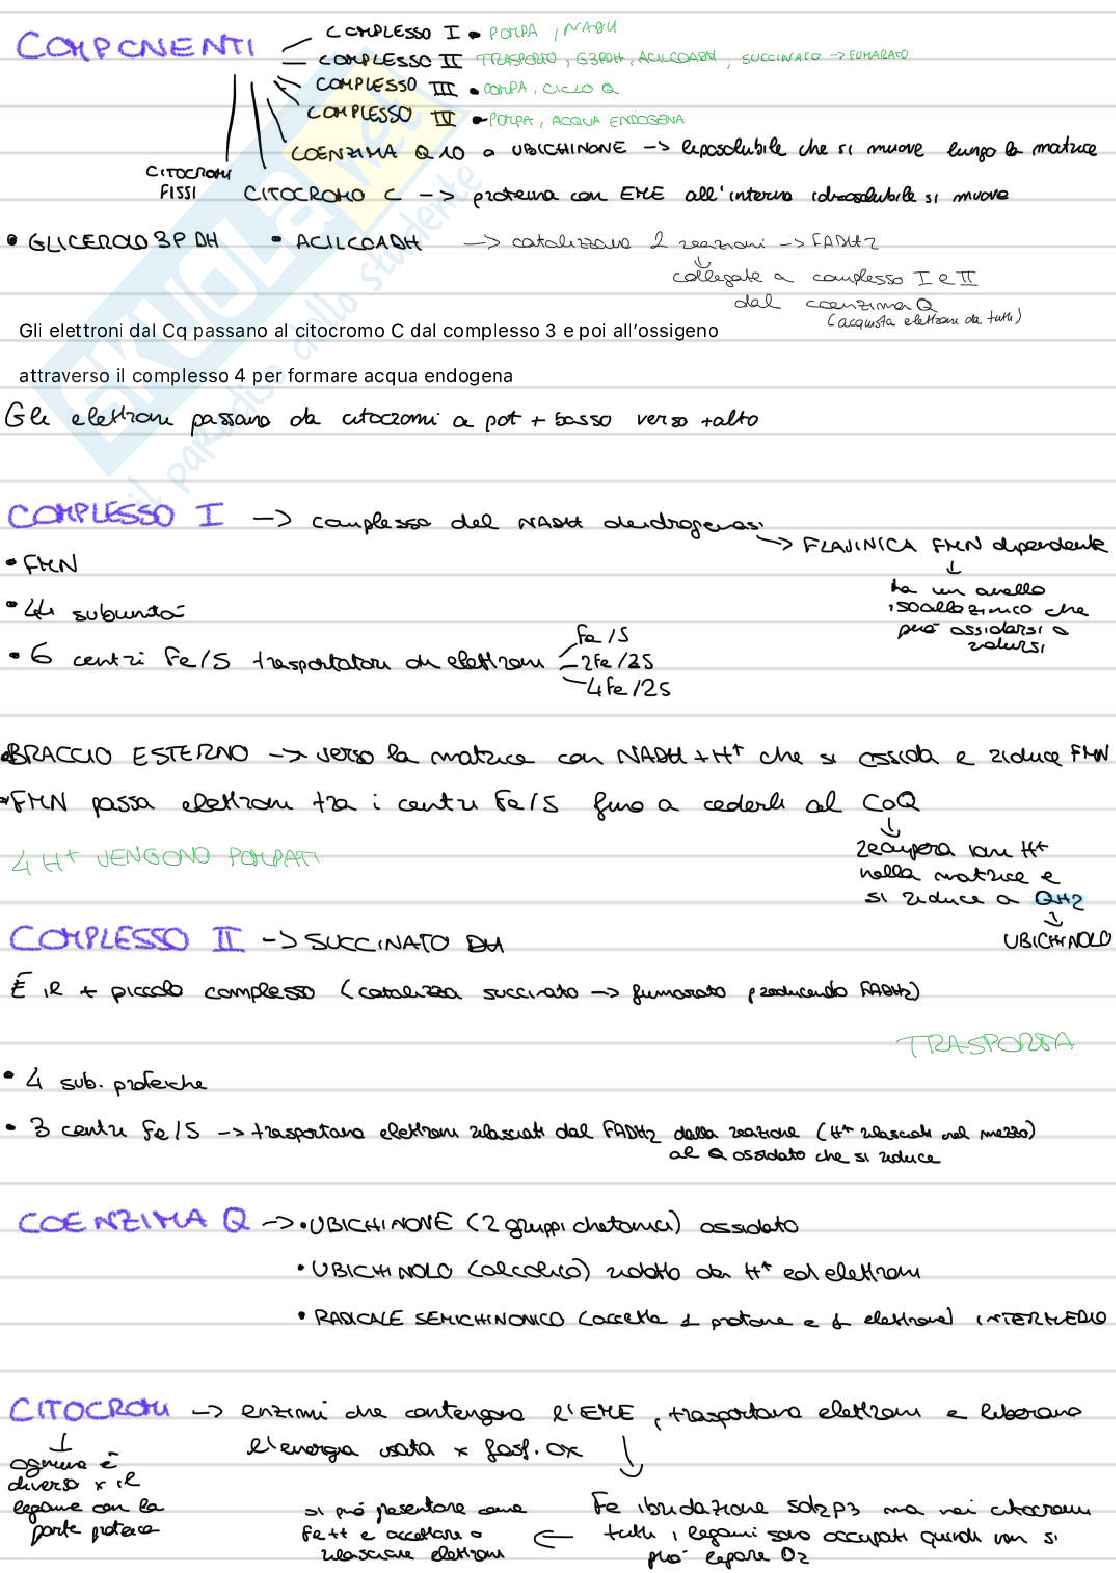 COMPONENTI
COMPLESSO I • POMPA, NADH
COMPLESSO II TRASPORTO, G3PDH, ACILCOADH, SUCCINATO -> FUMARATO
COMPLESSO III • POMPA, CICLO Q
COMPLESSO IV • POMPA, ACQUA ENDOGENA
COENZIMA Q10 o UBICHINONE -> liposolubile che si muove lungo la matrice
CITOCROMI
FISSI
CITOCROMO C -> proteina con EME all'interno idrosolubile si muove
• GLICEROLO 3P DH • ACILCOADH -> catalizzano 2 reazioni -> FADH2
collegate a complesso I e II
dal coenzima Q
(acquista elettroni da tutti)
Gli elettroni dal Cq passano al citocromo C dal complesso 3 e poi all'ossigeno
attraverso il complesso 4 per formare acqua endogena
Gli elettroni passano da citocromi a pot + basso verso + alto
COMPLESSO I -> complesso del NADH deidrogenasi
-> FLAVINICA FMN dipendente
• FMN
ha un anello
isoallozinico che
può ossidarsi o
ridursi
• 44 subunità
• 6 centri Fe/S trasportatori di elettroni
Fe/S
2Fe/2S
4Fe/2S
• BRACCIO ESTERNO -> verso la matrice con NADH + H+ che si ossida e riduce FMN
• FMN passa elettroni tra i centri Fe/S fino a cederli al CoQ
4 H+ VENGONO POMPATI
recupera ioni H+
nella matrice e
si riduce a QH2
UBICHINOLO
COMPLESSO II -> SUCCINATO DH
È il + piccolo complesso (catalizza succinato -> fumarato producendo FADH2)
TRASPORTA
• 4 sub. proteiche
• 3 centri Fe/S -> trasportano elettroni rilasciati dal FADH2 dalla reazione (H+ rilasciati nel mezzo)
al Q ossidato che si riduce
COENZIMA Q -> • UBICHINONE (2 gruppi chetonici) ossidato
• UBICHINOLO (alcolico) ridotto da H+ ed elettroni
• RADICALE SEMICHINONICO (accetta 1 protone e 1 elettrone) INTERMEDIO
CITOCROMI -> enzimi che contengono l'EME, trasportano elettroni e liberano
l'energia usata x fosf. ox
ognuno è
diverso x il
legame con la
parte proteica
si può presentare come
Fe++ e accettare o
rilasciare elettroni
Fe ibridazione sd2p3 ma nei citocromi
tutti i legami sono occupati quindi non si
può legare O2
SKUOLA.net
il paradiso dello studente